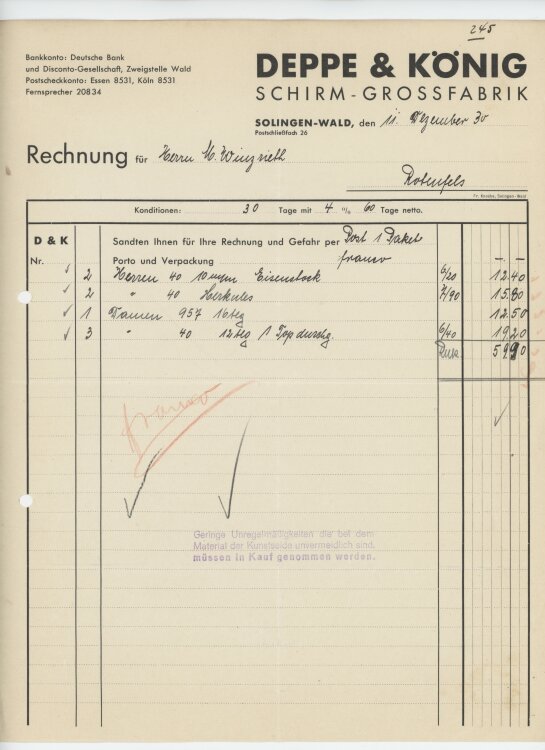 245
Bankkonto: Deutsche Bank
und Disconto-Gesellschaft, Zweigstelle Wald
Postscheckkonto: Essen 8531, Köln 8531
Fernsprecher 20834
DEPPE & KÖNIG
SCHIRM-GROSSFABRIK
SOLINGEN-WALD, den 11. Dezember 30
Postschließfach 26
Rechnung für Herrn M.
Rotenfels
Fr. Knoche, Solingen-Wald
Konditionen: 30 Tage mit 4 % 60 Tage netto.
D & K Sandten Ihnen für Ihre Rechnung und Gefahr per Post 1 Paket
Nr. Porto und Verpackung franco -.-
2 Herren 40 Eisenstock 6/20 12.40
2 " 40 Herkules 7/90 15.80
1 Damen 957 16tlg 12.50
3 " 40 12tlg 1 Topdurchg. 6/40 19.20
59.90
franco
Geringe Unregelmäßigkeiten die bei dem
Material der Kunstseide unvermeidlich sind,
müssen in Kauf genommen werden.